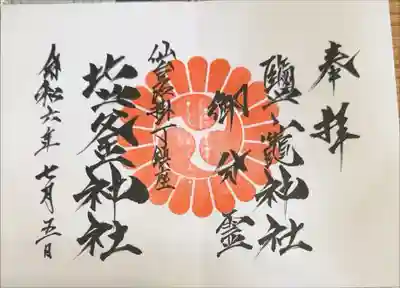 奉拝
鹽竈神社
御分霊
仙台区掛丁鎮座
塩釜神社
令和六年七月五日